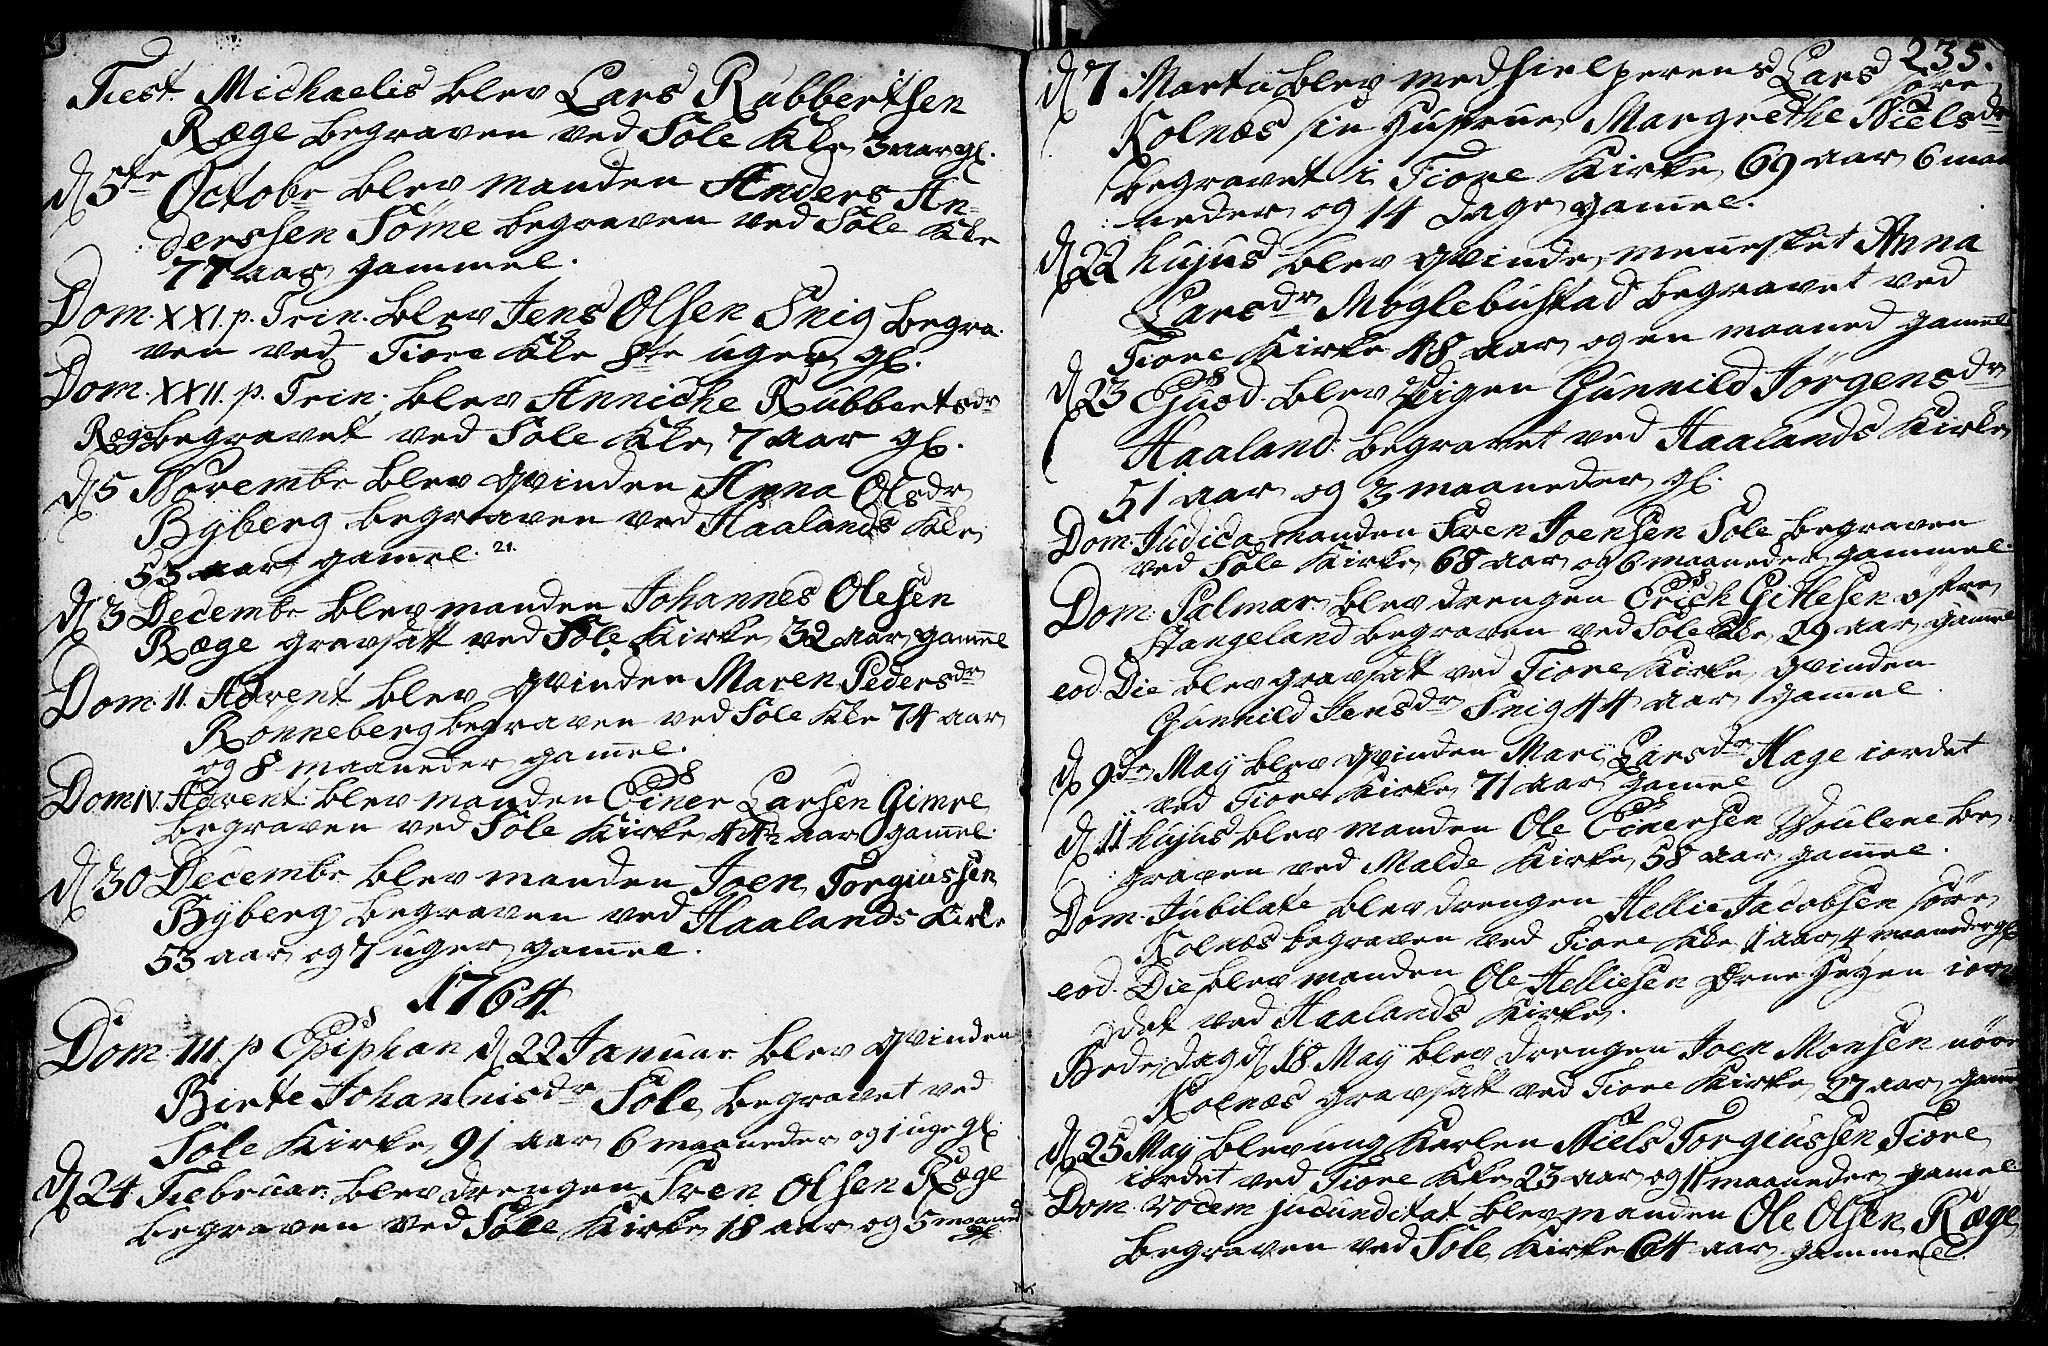 Fest. Michaelis blev Lars Rubbertsen
Ræge begraven ved Sole Kke 3 aar gl.
d 5te Octobr blev manden Anders An-
derssen Sömme begraven ved Sole Kke
77 aar gammel.
Dom. XXI. p. Trin. blev Jens Olsen Snig begra-
ven ved Tiore Kke 8te uger gl.
Dom. XXII. p. Trin. blev Anniche Rubbertsdr
Ræge begravet ved Sole Kke 7 aar gl.
d 5 Novembr blev qvinden Anna Olsdr
Byberg begraven ved Haalands Kke
53 aar gamel. 21.
d 3 Decembr blev manden Johannes Olesen
Ræge gravsatt ved Sole Kirke 32 aar gamel
Dom. II. Advent blev qvinden Maren Pedersdr
Rönneberg begraven ved Sole Kke 74 aar
og 8 maaneder gamel.
Dom IV. Advent: blev manden Einer Larsen Gimre
begraven ved Sole Kirke 44½ aar gamel.
d 30 Decembr blev manden Joen Torgiussen
Byberg begraven ved Haalands Kirke
53 aar og 7 uger gamel.
1764.
Dom. III. p Epiphan d 22 Januar blev qvinden
Birte Johannisdr Sole begravet ved
Sole Kirke 91 aar 6 maaneder og 1 uge gl.
d 24 Februar blev drengen Sven Olsen Ræge
begraven ved Sole Kirke 18 aar og 5 maaned
gl.
235.
d 7 Marti blev medhielperens Lars söre
Kolnæs sin Hustrue Margrethe Nielsdr
begravet i Tiore Kirke 69 aar 6 maa
neder og 14 dage gamel.
d 22 hujus blev qvinde mennesket Anna
Larsdr Möglebustad begravet ved
Tiore Kirke 48 aar og en maaned gamel
d 23 Ejusd. blev Pigen Gunnild Jørgensdr
Haaland begravet ved Haalands Kirke
51 aar og 3 maaneder gl.
Dom. Judica manden Sven Joensen Sole begraven
ved Sole Kirke 68 aar og 6 maaneder gammel.
Dom. Palmar. blev drengen Erich Gitlesen østre
Stangeland begraven ved Sole Kke 29 aar gamel
eod. Die blev gravsatt ved Tiore Kirke qvinden
Gunnild Jensdr Snig 44 aar gamel.
d 9de May blev qvinden Mari Larsdr Hage iordet
ved Tiore Kirke 71 aar gamel
d 11 hujus blev manden Ole Einersen Voulene be-
graven ved Malde Kirke 58 aar gamel.
Dom. Jubilate blev drengen Hellie Jacobsen söre
Kolnæs begraven ved Tiore Kke 1 aar 4 maaneder gl
eod. Die blev manden Ole Helliesen Ørne Heyen ior-
det ved Haalands Kirke.
Bededag d 18 May blev drengen Joen Monsen nöre
Kolnæs gravsatt ved Tiore Kirke 27 aar gamel
d 25 May blev ung Karlen Niels Torgiussen Tiore
iordet ved Tiore Kke 23 aar og 11 maaneder gamel
Dom. vocem jucunditat blev manden Ole Olsen Ræge
begraven ved Sole Kirke 64 aar gammel.